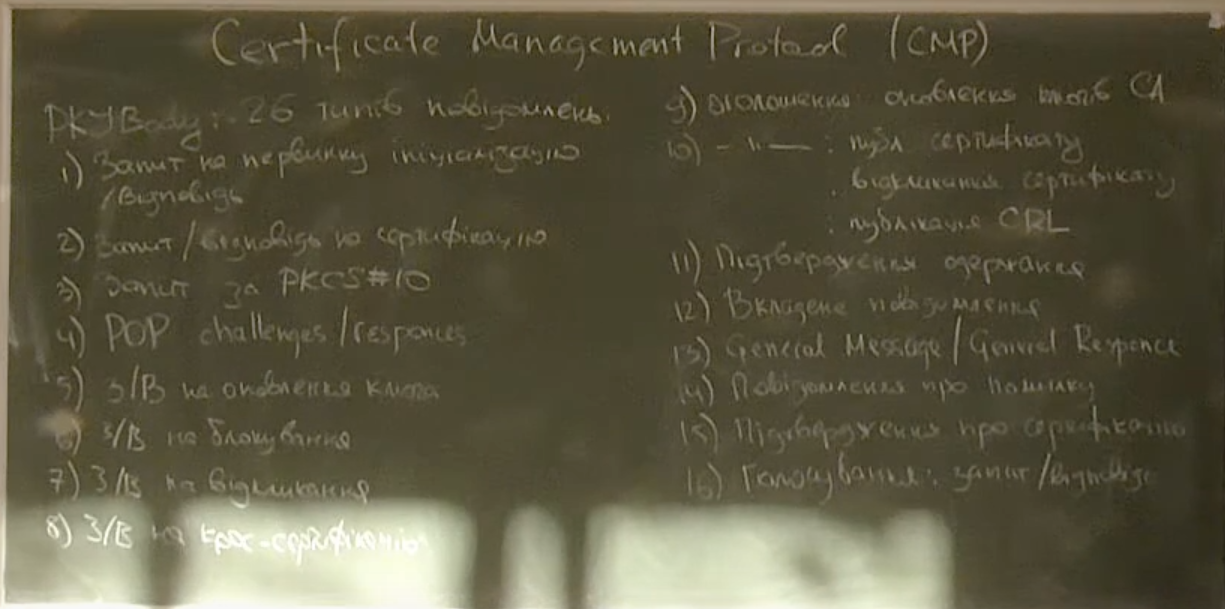 Certificate Management Protocol (CMP)
PKIBody: 26 типів повідомлень.
1) Запит на первинну ініціалізацію
/Відповідь
2) Запит/відповідь на сертифікацію
3) Запит за PKCS#10
4) POP challenges/responces
5) З/В на оновлення ключа
6) З/В на блокування
7) З/В на відкликання
8) З/В на крос-сертифікацію
9) Оголошення: оновлення ключів CA
10) – " — : публ сертифікату
: відкликання сертифікату
: публікація CRL
11) Підтвердження одержання
12) Вкладене повідомлення
13) General Message/General Responce
14) Повідомлення про помилку
15) Підтвердження про сертифікацію
16) запит/відповідь